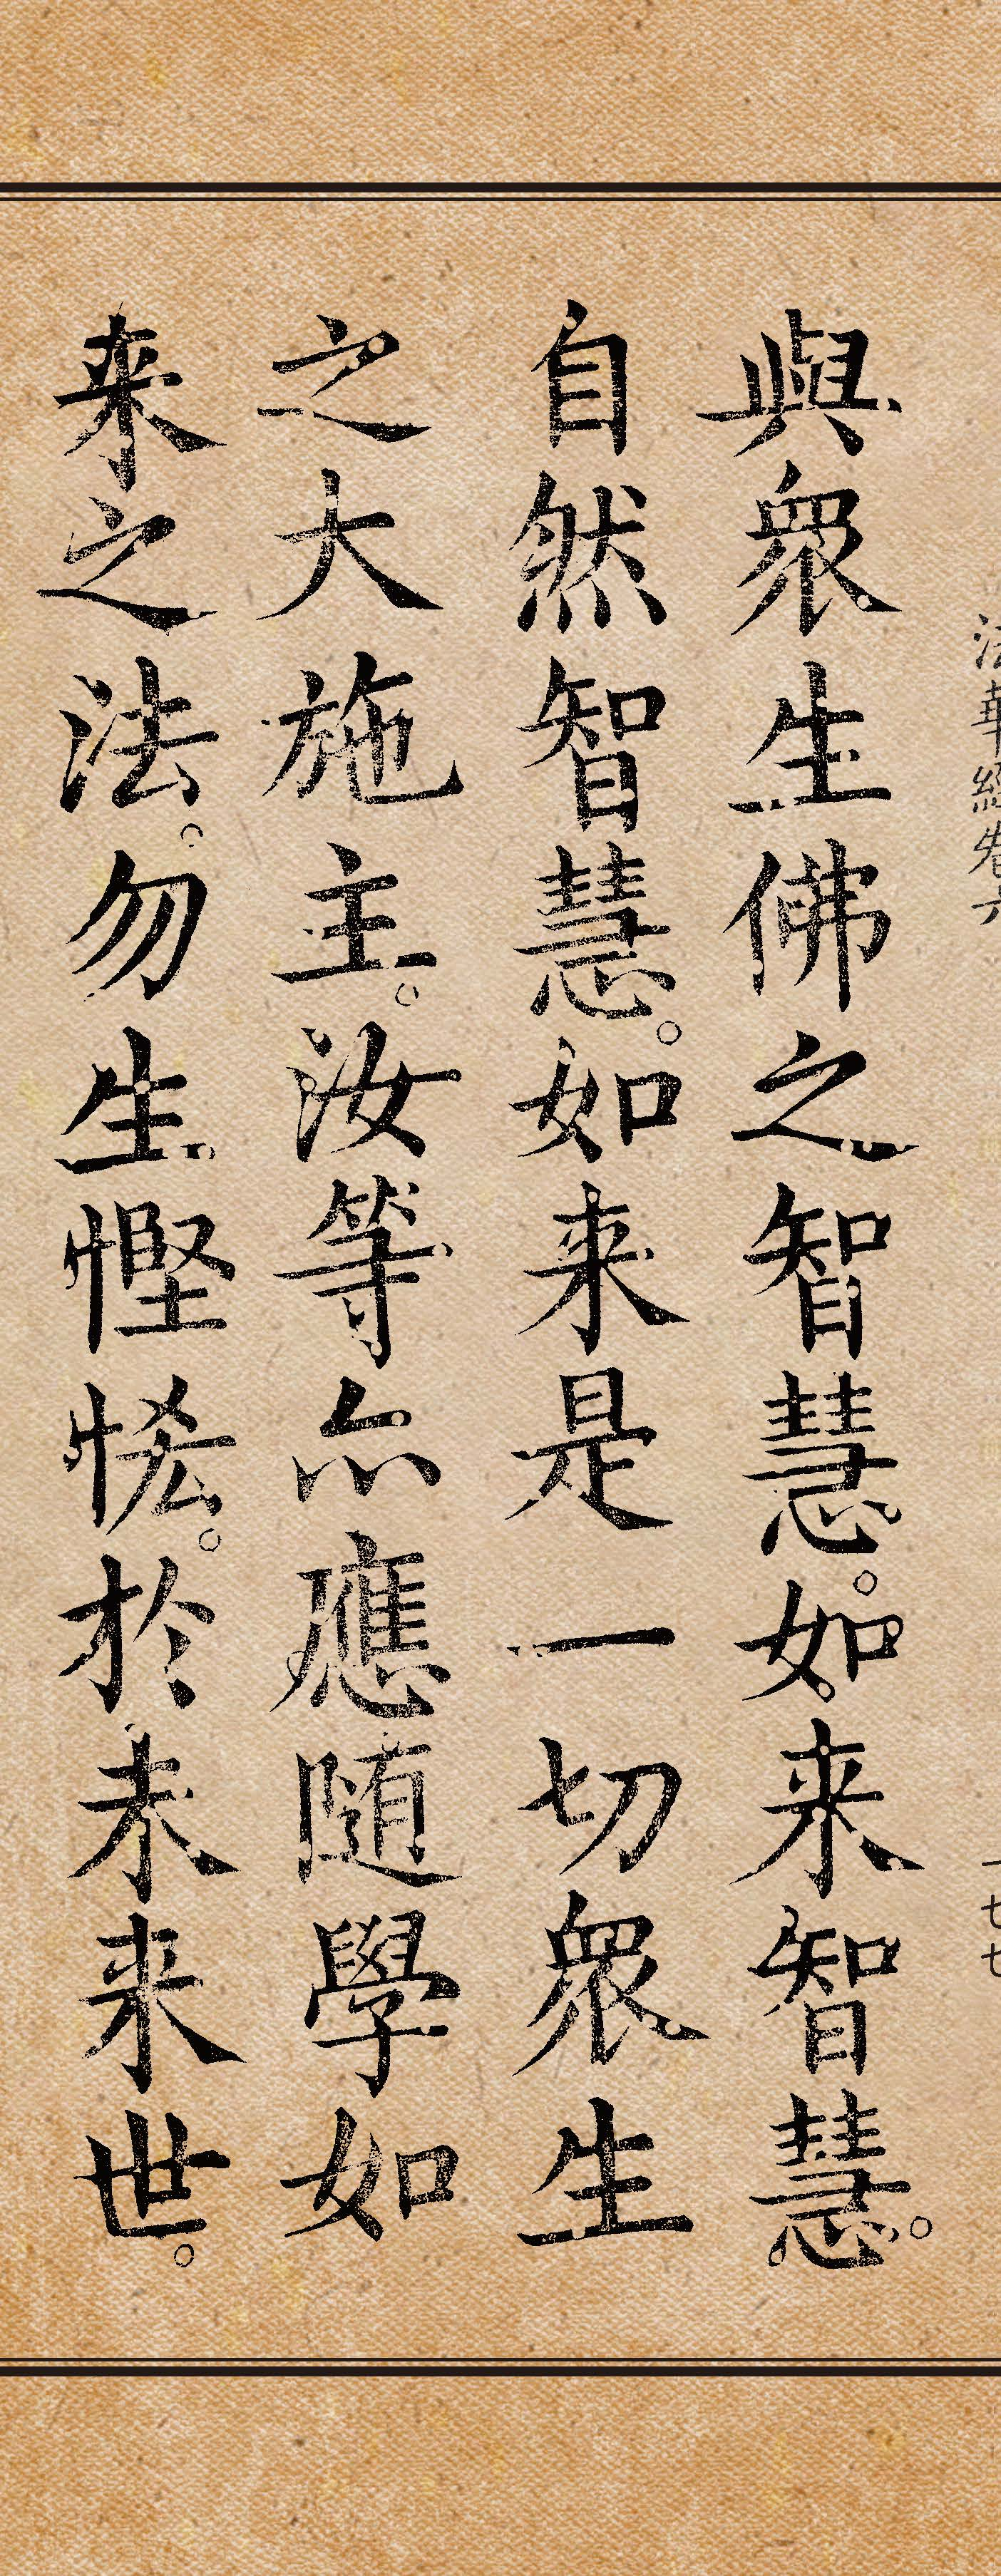 法華經卷六 一七七
與衆生佛之智慧。如来智慧。
自然智慧。如来是一切衆生
之大施主。汝等亦應随學如
来之法。勿生慳悋。於未来世。